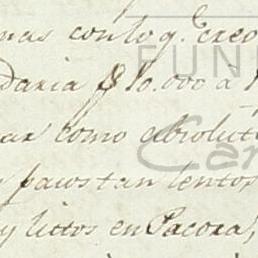 mas con lo q. Creo
daria $10.000 à
ar como absolut
pacostan lentos
y littos en Pacora,
FUN
Car